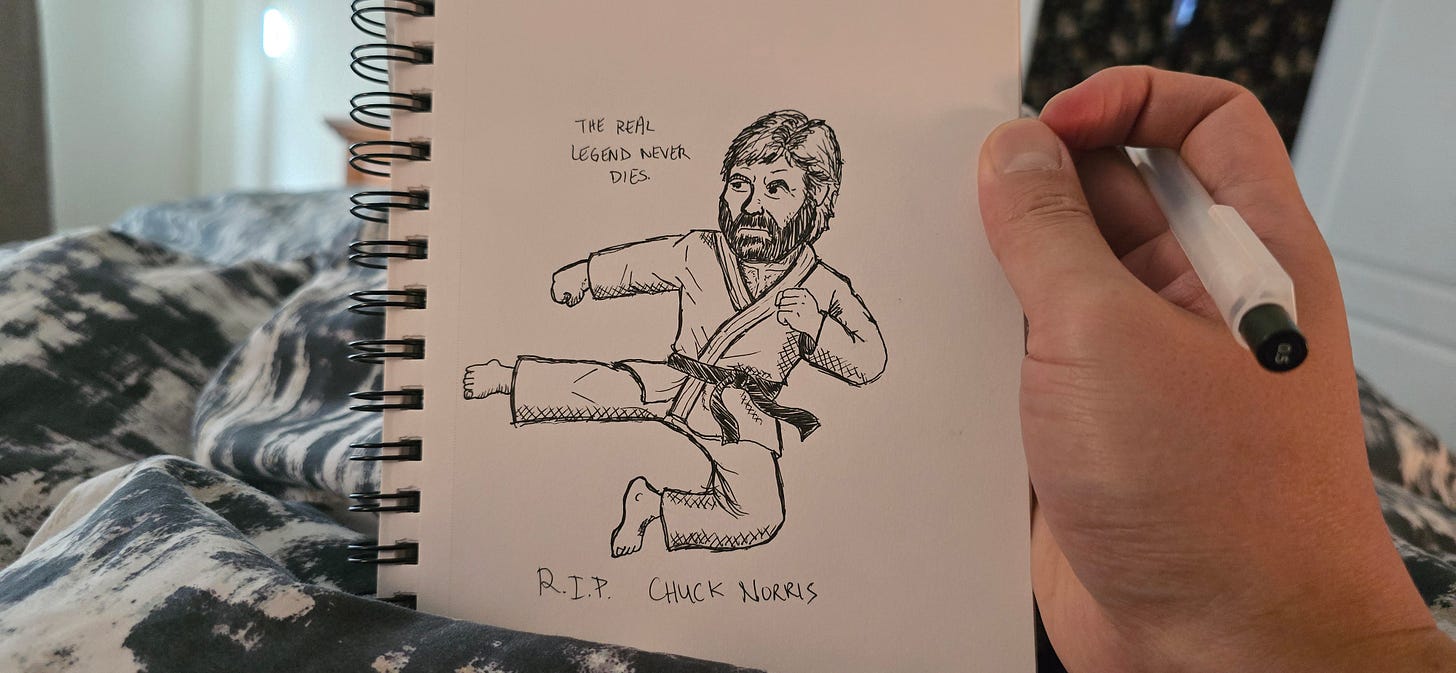 THE REAL
LEGEND NEVER
DIES.
R.I.P. CHUCK NORRIS
0.5